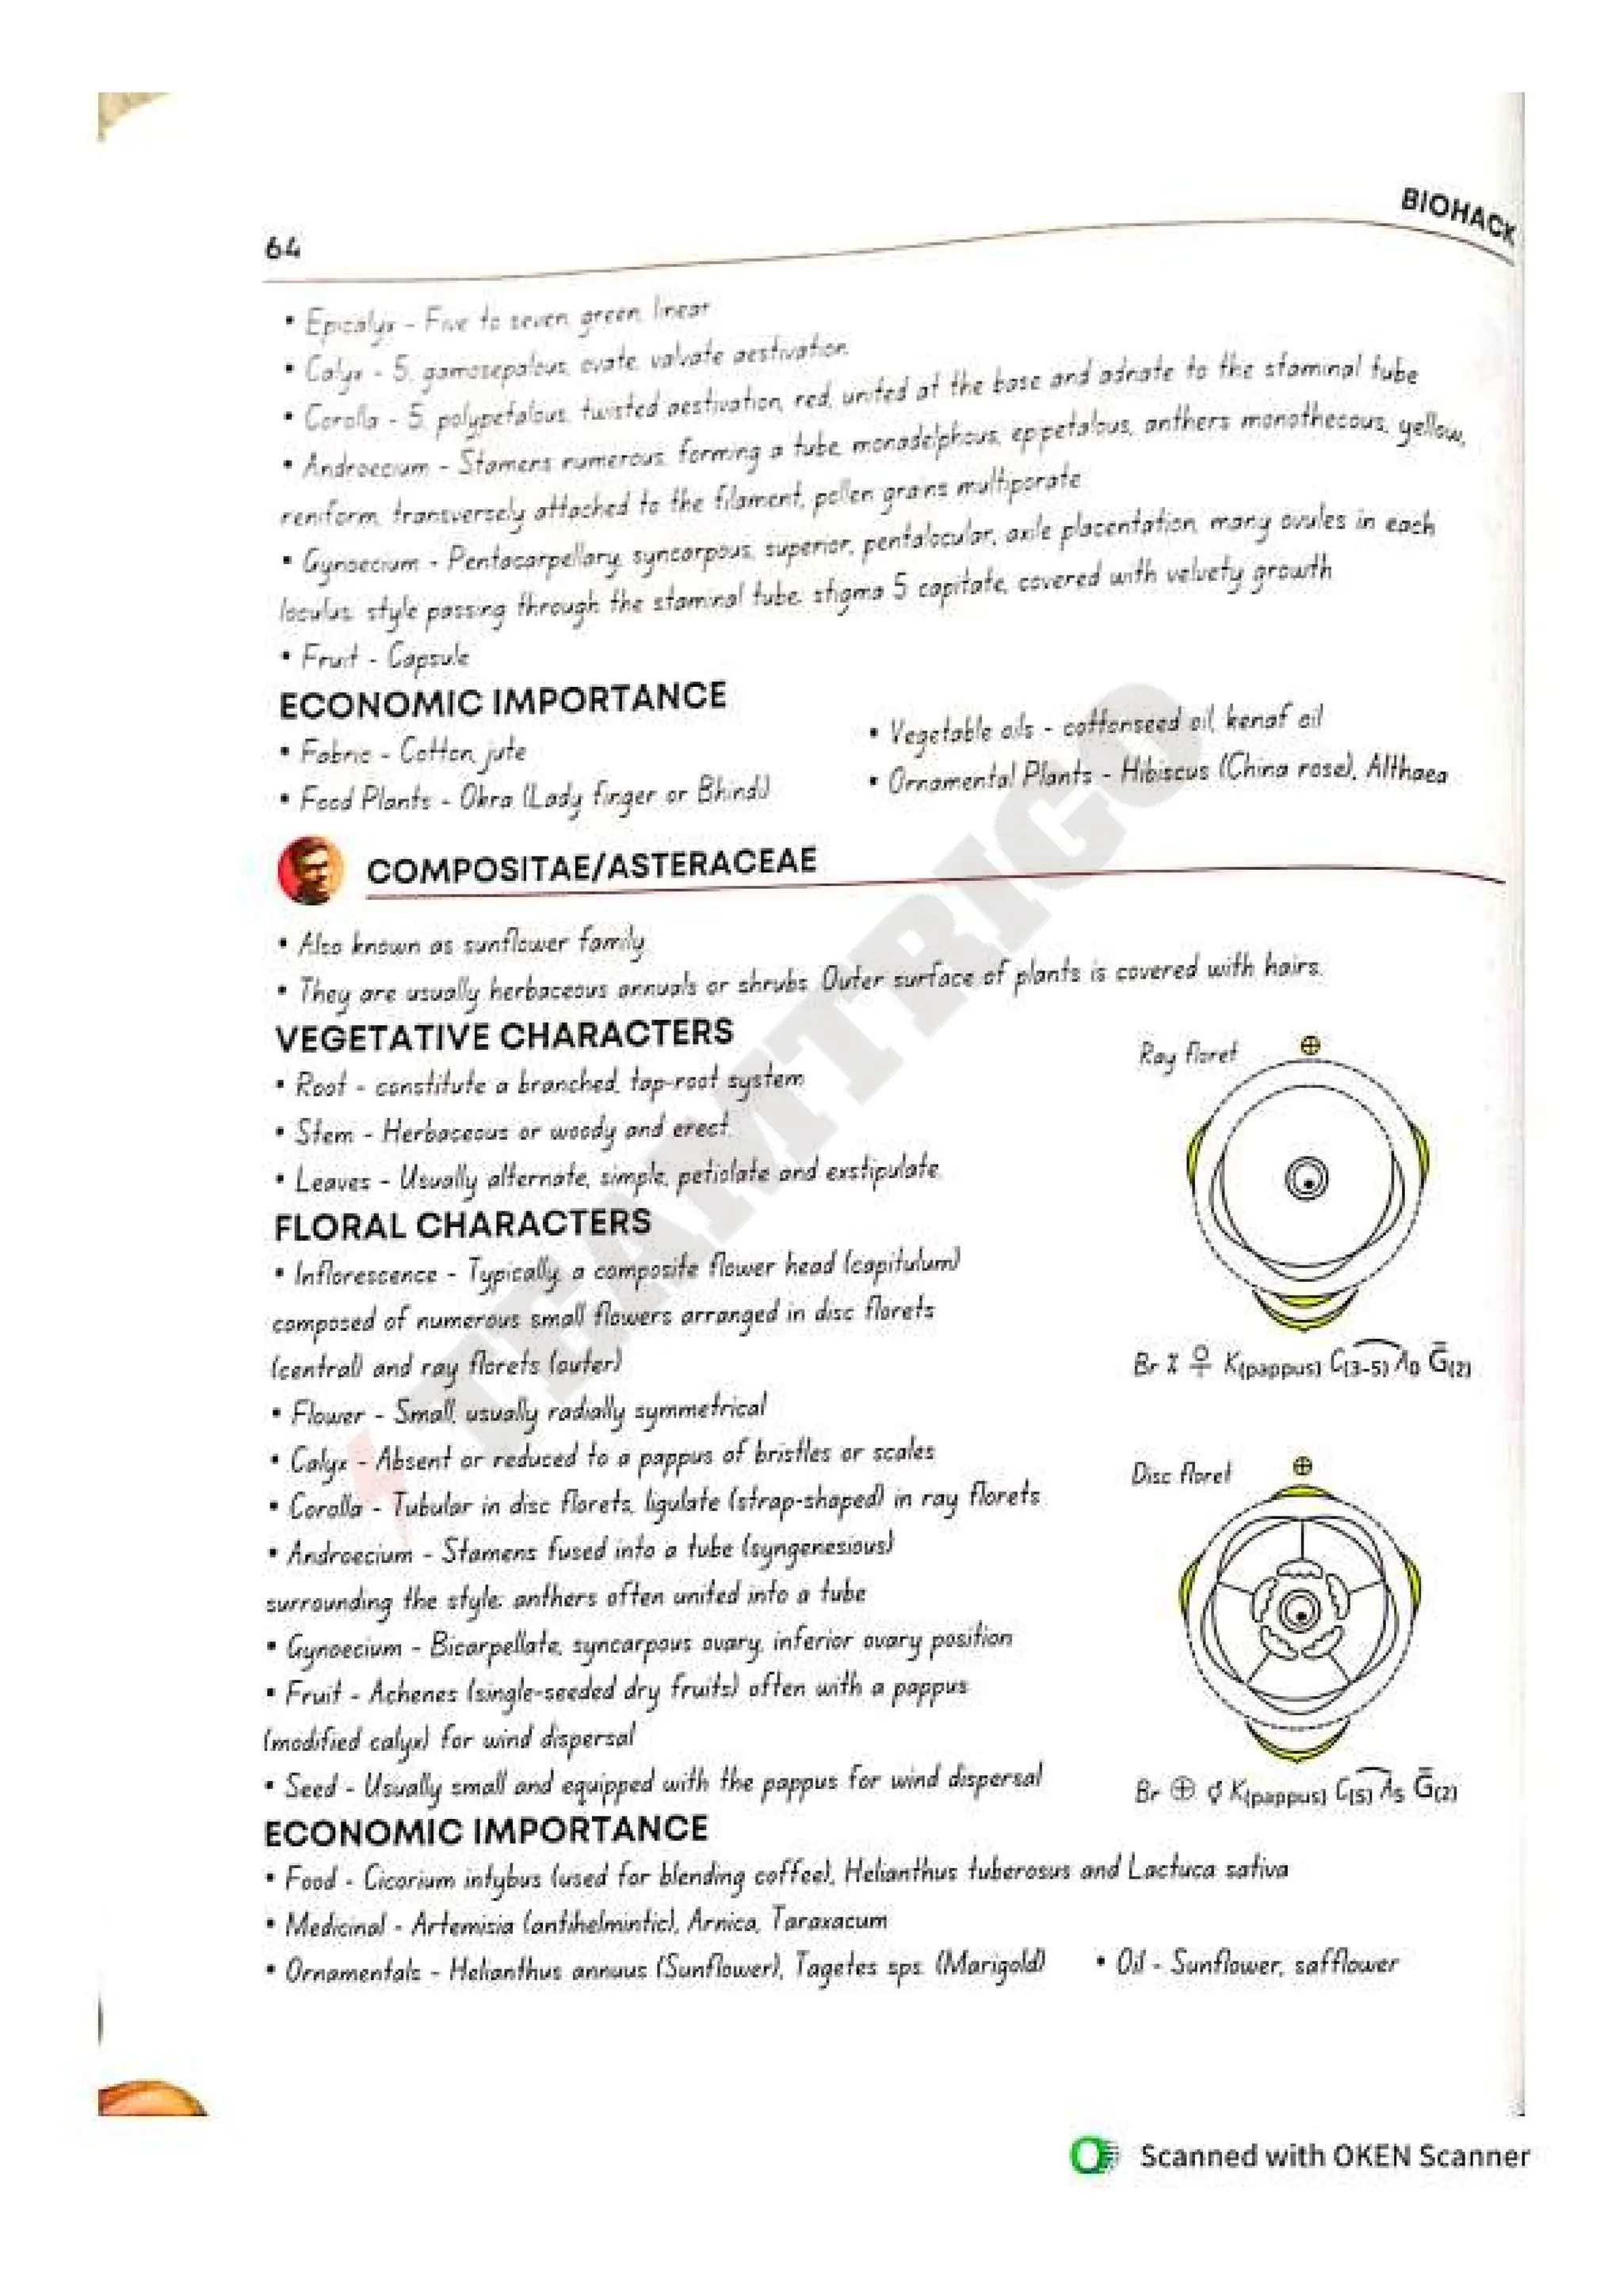 BIOHACK
64
• Epicalyx - Five to seven green linear
• Calyx - 5, gamosepalous, ovate, valvate aestivation
• Corolla - 5, polypetalous, twisted aestivation, red, united at the base and adnate to the staminal tube
• Androecium - Stamens numerous, forming a tube, monadelphous, eppetalous, anthers monothecous, yellow,
reniform, transversely attached to the filament, pollen grains multiporate
• Gynoecium - Pentacarpellary, syncarpous, superior, pentalocular, axile placentation, many ovules in each
loculus; style passing through the staminal tube; stigma 5 capitate, covered with velvety growth
• Fruit - Capsule
ECONOMIC IMPORTANCE
• Fabric - Cotton, jute
• Food Plants - Okra (Lady finger or Bhindi)
• Vegetable oils - cottonseed oil, kenaf oil
• Ornamental Plants - Hibiscus (China rose), Althaea
COMPOSITAE/ASTERACEAE
• Also known as sunflower family.
• They are usually herbaceous annuals or shrubs. Outer surface of plants is covered with hairs.
VEGETATIVE CHARACTERS
• Root - constitute a branched, tap-root system
• Stem - Herbaceous or woody and erect.
• Leaves - Usually alternate, simple, petiolate and exstipulate.
FLORAL CHARACTERS
• Inflorescence - Typically, a composite flower head (capitulum)
composed of numerous small flowers arranged in disc florets
(central) and ray florets (outer)
• Flower - Small, usually radially symmetrical
• Calyx - Absent or reduced to a pappus of bristles or scales
• Corolla - Tubular in disc florets, ligulate (strap-shaped) in ray florets
• Androecium - Stamens fused into a tube (syngenesious)
surrounding the style; anthers often united into a tube
• Gynoecium - Bicarpellate, syncarpous ovary, inferior ovary position
• Fruit - Achenes (single-seeded dry fruits) often with a pappus
(modified calyx) for wind dispersal
• Seed - Usually small and equipped with the pappus for wind dispersal
Ray floret ⊕
Br % ♀ K(pappus) C(3-5) A0 G̅(2)
Disc floret ⊕
Br ⊕ ⚥ K(pappus) C(5) A5 G̅(2)
ECONOMIC IMPORTANCE
• Food - Cicorium intybus (used for blending coffee), Helianthus tuberosus and Lactuca sativa
• Medicinal - Artemisia (antihelmintic), Arnica, Taraxacum
• Ornamentals - Helianthus annuus (Sunflower), Tagetes sps. (Marigold)
• Oil - Sunflower, safflower
TEAMTRIGO
Scanned with OKEN Scanner